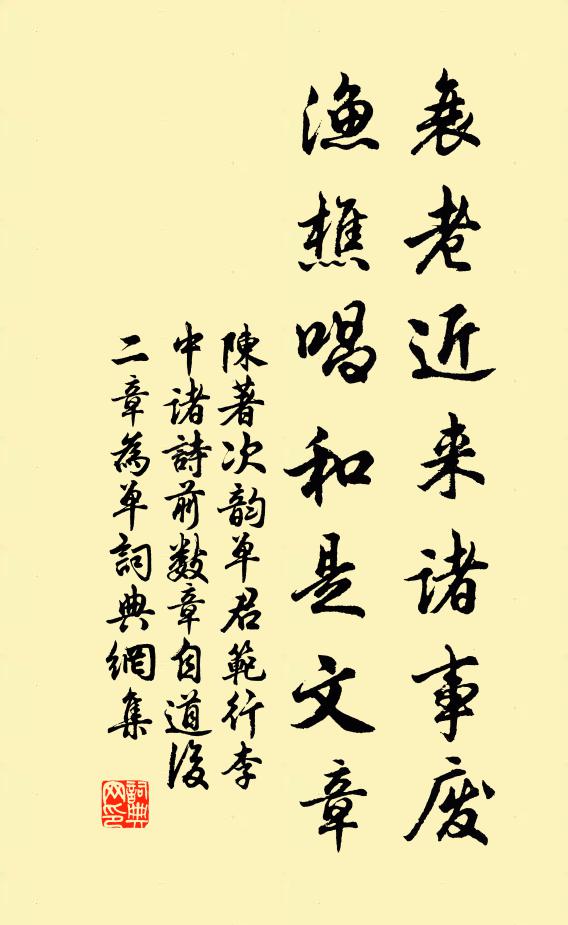 衰老近来諸事廢
漁樵唱和是文章
陳著次韵单君範行李
中诸詩前数章自道後
二章為单詞典網集
詞典
网印